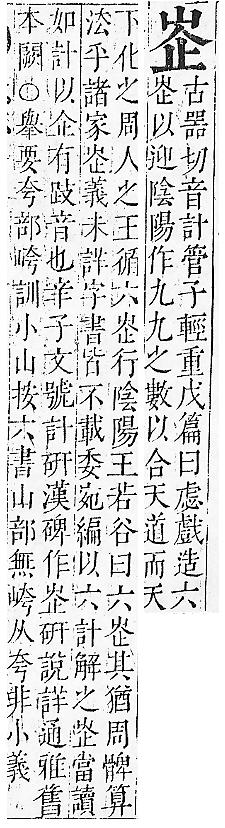 峜
古器切音計管子輕重戊篇曰虙戲造六
峜以迎陰陽作九九之數以合天道而天
下化之周人之王循六峜行陰陽王若谷曰六峜其猶周髀算
法乎諸家峜義未詳字書皆不載委宛編以六計解之峜當讀
如計以企有跂音也辛子文號計研漢碑作峜研說詳通雅舊
本闕○舉要夸部訓小山按六書山部無从夸非小義